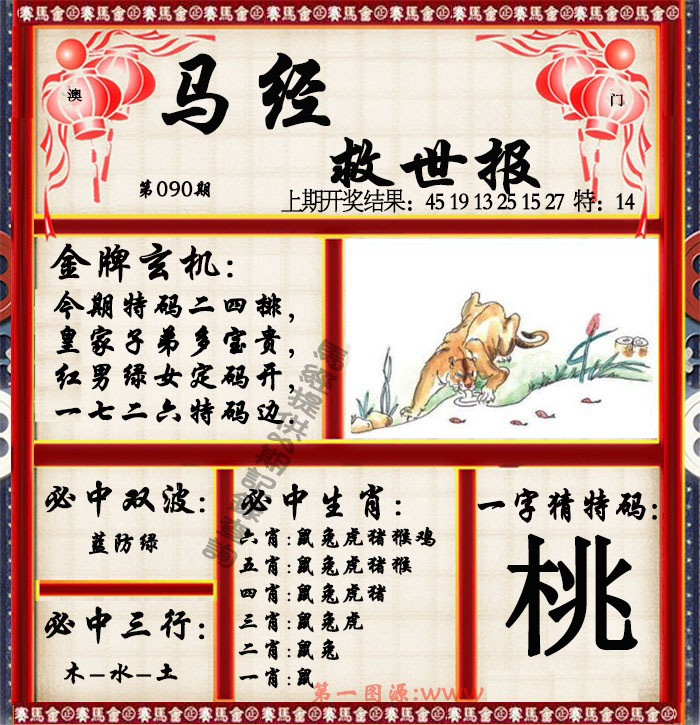 賽馬會㊣賽馬會㊣賽馬會㊣賽馬會㊣賽馬會㊣賽馬會㊣賽馬會
澳
门
马经
救世报
第090期
上期开奖结果：45 19 13 25 15 27 特：14
金牌玄机：
今期特码二四排，
皇家子弟多宝贵，
红男绿女定码开，
一七二六特码边.
必中双波：
蓝防绿
必中三行：
木-水-土
必中生肖：
六肖:鼠兔虎猪猴鸡
五肖:鼠兔虎猪猴
四肖:鼠兔虎猪
三肖:鼠兔虎
二肖:鼠兔
一肖:鼠
一字猜特码：
桃
第一图源:www